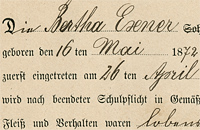 Die Bertha Exner Soh
geboren den 16 ten Mai 1872
zuerst eingetreten am 26 ten April
wird nach beendeter Schulpflicht in Gemäß
Fleiß und Verhalten waren lobens